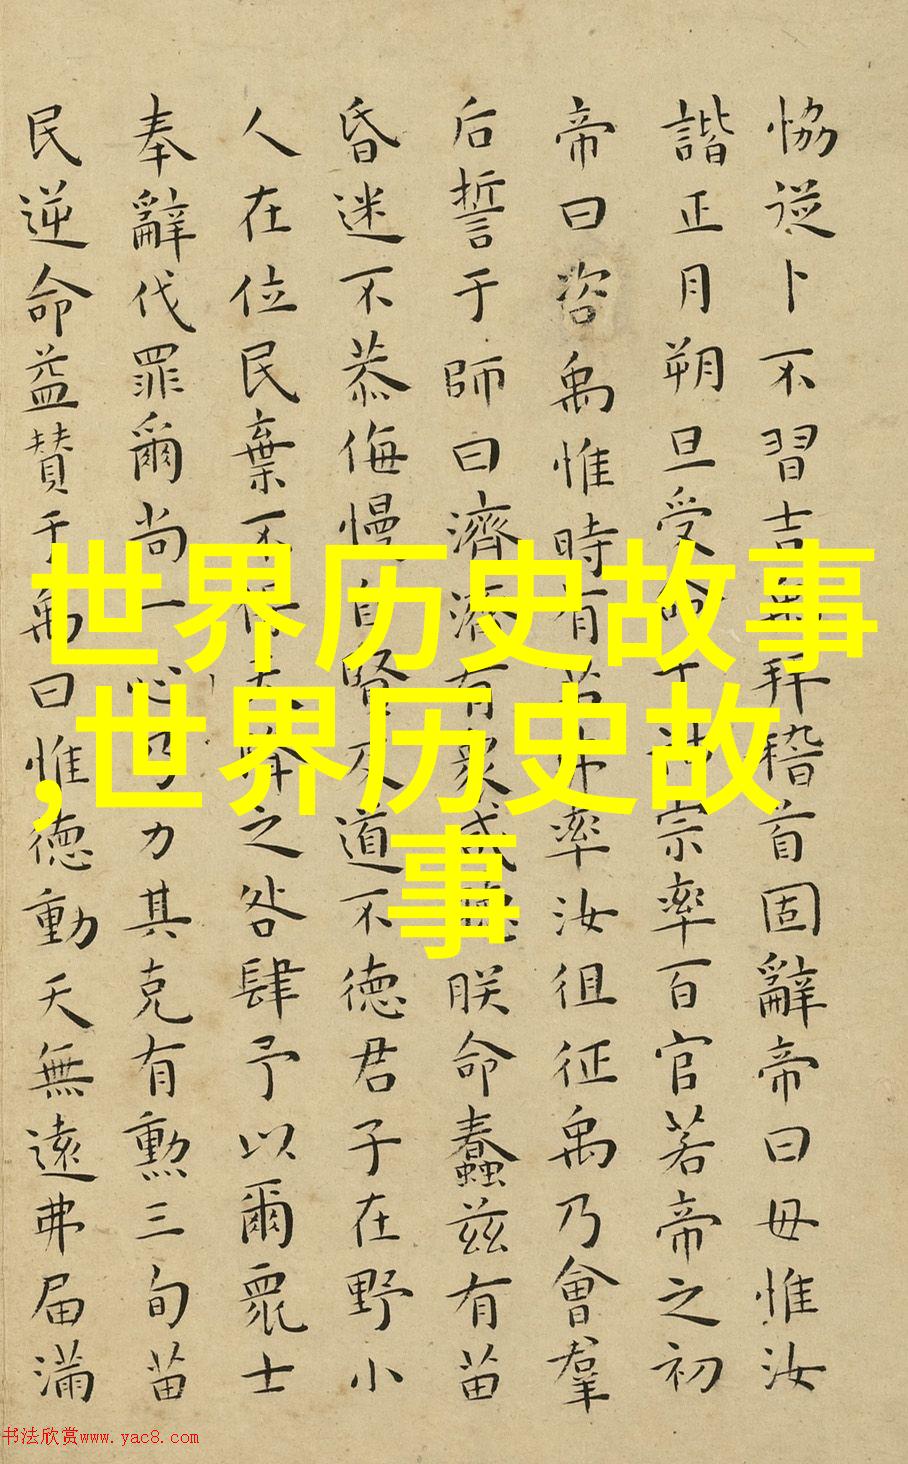 恊從卜不習吉禹拜稽首固辭帝曰毋惟汝
諧正月朔旦受命于神宗率百官若帝之初
帝曰咨禹惟時有苗弗率汝徂征禹乃會羣
后誓于師曰濟濟有衆咸聽朕命蠢茲有苗
昏迷不恭侮慢自賢反道不德君子在野小
人在位民棄不保天降之咎肆予以爾衆士
奉辭伐罪爾尚一心乃力其克有勲三旬苗
民逆命益賛于禹曰惟德動天無遠弗届滿
世界历史故事
,世界历史故
事
书法欣赏www.yac8.com